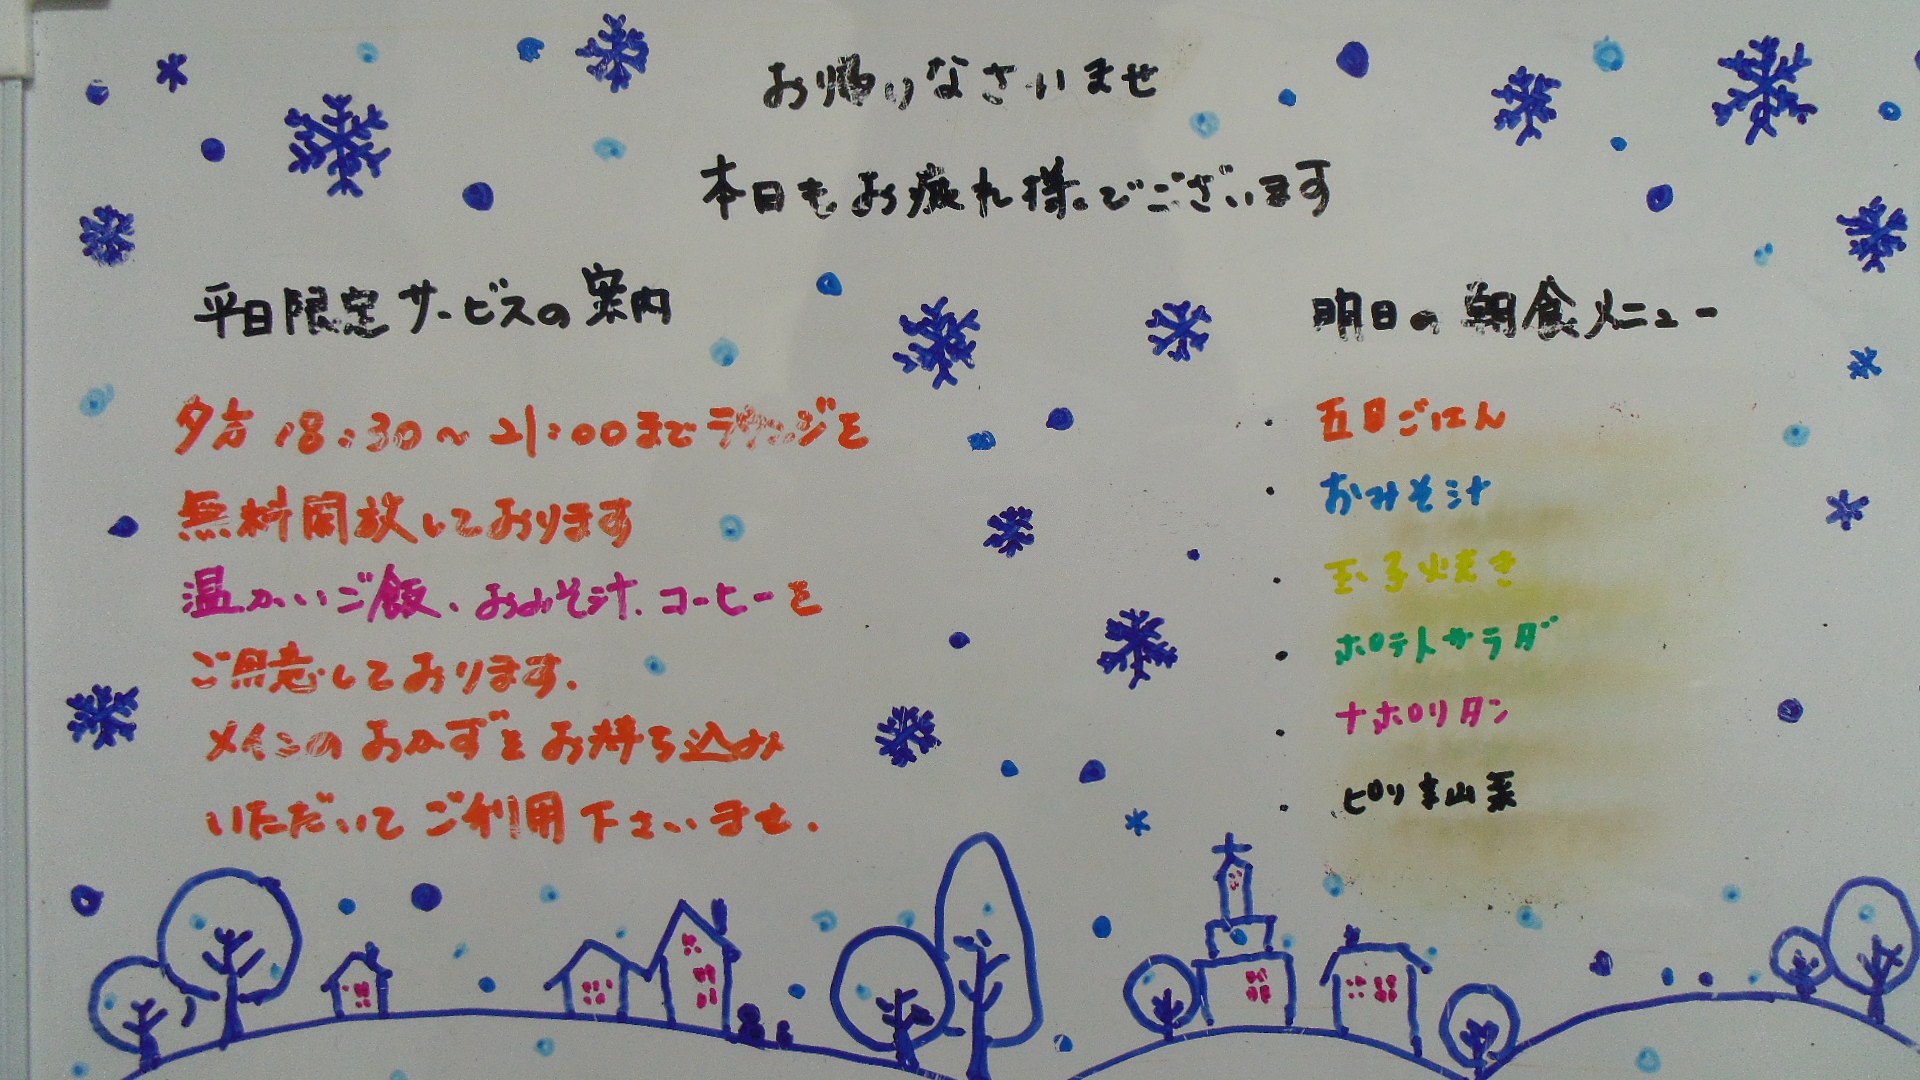 お帰りなさいませ
本日もお疲れ様でございます
平日限定サービスの案内
夕方18:30~21:00までラウンジを
無料開放しております
温かいご飯、おみそ汁、コーヒーを
ご用意しております.
メインのおかずをお持ち込み
いただいてご利用下さいませ.
明日の朝食メニュー
・五目ごはん
・おみそ汁
・玉子焼き
・ポテトサラダ
・ナポリタン
・ピリ辛山菜